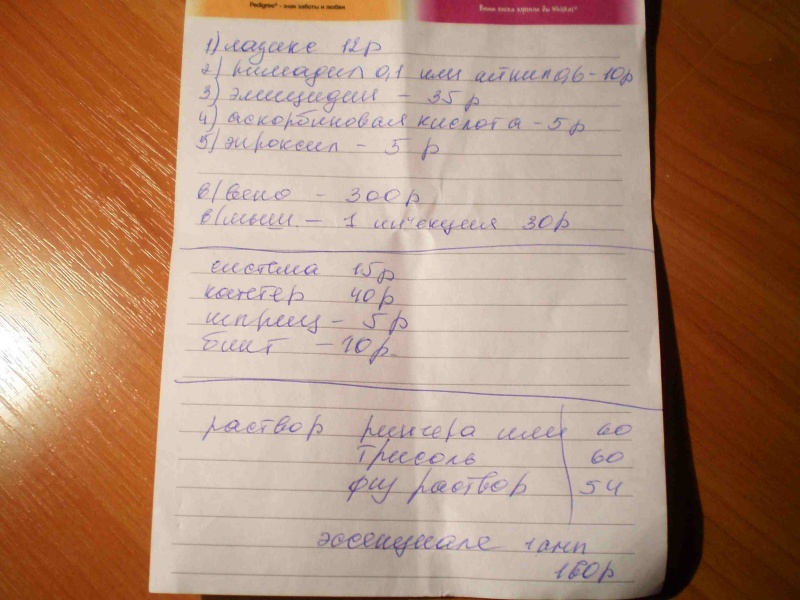 Pedigree® - знак заботы и любви
Ваша киска купила бы Whiskas®
1) лазикс 12р
2) римадил 0,1 или айнил 0,6 - 10р
3) элицидин - 35 р
4) аскорбиновая кислота - 5 р
5) энроксил - 5 р
в/вено - 300р
в/мыш. - 1 инъекция 30р
система 15р
катетер 40р
шприц - 5 р
бинт - 10р.
раствор рингера или 60
трисоль 60
физ раствор 54
эссенциале 1 амп
160р